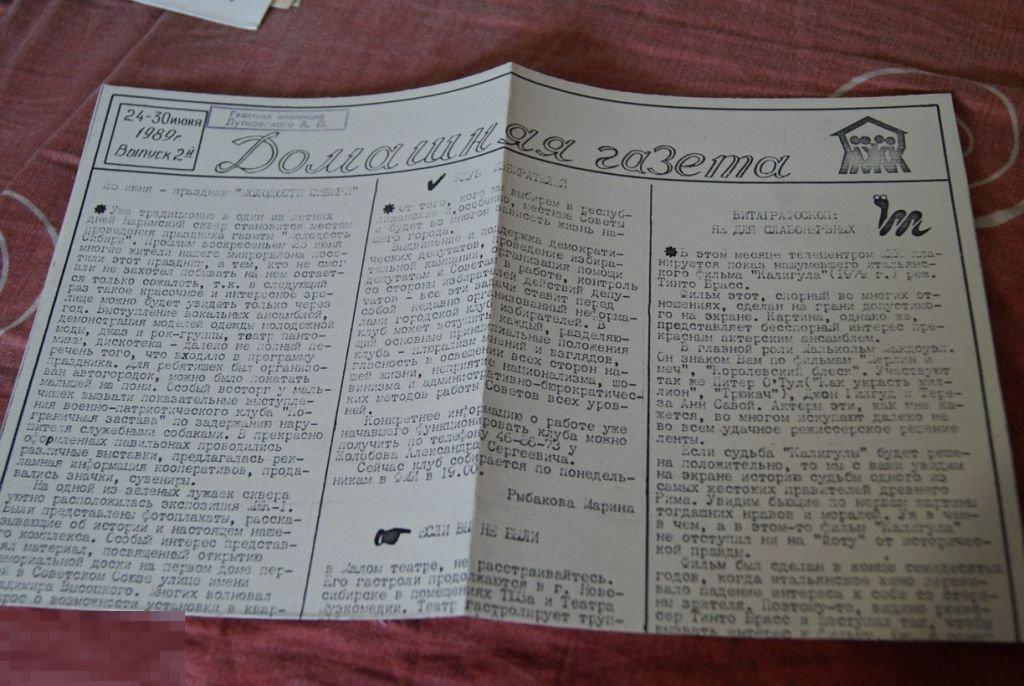 24-30 июня
1989г.
Выпуск 2й
Газетная коллекция
Лутковского А. В.
Домашняя газета
25 июня - праздник "МОЛОДОСТИ СИБИРИ"
Уже традиционно в один из летних
дней Нарымский сквер становится местом
проведения праздника газеты "Молодость
Сибири". Прошлым воскресеньем 25 июня
многие жители нашего микрорайона посе-
тили этот праздник, а тем, кто не смог
или не захотел побывать на нем остает-
ся только сожалеть, т.к. в следующий
раз такое красочное и интересное зре-
лище можно будет увидеть только через
год. Выступление вокальных ансамблей,
демонстрация моделей одежды молодежной
моды, джаз и рок-группы, театр панто-
мимы, дискотека - далеко не полный пе-
речень того, что входило в программу
праздника. Для ребятишек был организо-
ван автогородок, можно было покатать
малышей на пони. Особый восторг у маль-
чишек вызвали показательные выступле-
ния военно-патриотического клуба "По-
граничная застава" по задержанию нару-
шителя служебными собаками. В прекрасно
оформленных павильонах проводились
различные выставки, предлагалась рек-
ламная информация кооперативов, прода-
вались значки, сувениры.
На одной из зеленых лужаек сквера
уютно расположилась экспозиция МЖК-1.
Были представлены фотоплакаты, расска-
зывающие об истории и настоящем наше-
го комплекса. Особый интерес представ-
лял материал, посвященный открытию
мемориальной доски на первом доме пер-
й в Советском Союзе улице имени
адимира Высоцкого. Многих волновал
рос о возможности установки в квар-
КЛУБ ИЗБИРАТЕЛЕЙ
От того, кого мы выбирем в респуб-
ликанские и, особенно, местные советы
и будет во многом зависеть жизнь на-
шего города.
Выдвижение и поддержка демократи-
ческих депутатов, проведение избира-
тельной кампании, организация помощи
депутатам и Советам в работе, контроль
со стороны избирателей действий депу-
татов - все эти задачи ставит перед
собой недавно организованный неформа-
лами городской клуб избирателей. В
клуб может вступить каждый, разделяю-
щий основные принципиальные положения
клуба - плюрализм мнений и взглядов,
гласность в освещении всех сторон на-
шей жизни, неприятие национализма, шо-
винизма и административно-бюрократичес-
ких методов работы Советов всех уров-
ней.
Конкретнее информацию о работе уже
начавшего функционировать клуба можно
получить по телефону у
Холобова Александра Сергеевича.
Сейчас клуб собирается по понедель-
никам в в 19.00.
Рыбакова Марина
ЕСЛИ ВЫ НЕ БЫЛИ
в Малом театре, не расстраивайтесь.
Его гастроли продолжаются в г. Ново-
сибирске в помещениях ТЮЗа и Театра
музкомедии. Театр гастролирует труп-
ВИТАГРАФОСКОП:
НЕ ДЛЯ СЛАБОНЕРВНЫХ
В этом месяце телецентром МЖК пла-
нируется показ нашумевшего итальянс-
кого фильма "Калигула" (1979 г.) реж.
Тинто Брасс.
Фильм этот, спорный во многих от-
ношениях, сделан на грани допустимо-
го на экране. Картина, однако же,
представляет бесспорный интерес пре-
красным актерским ансамблем.
В главной роли Малькольм Макдоуэл.
Он знаком Вам по фильмам "Мерлин и
меч", "Королевский блеск". Участвуют
так же Питер О'Тул("Как украсть мил-
лион", "Трюкач"), Джон Гилгуд и Тере-
за Анн Савой. Актеры эти, как мне ка-
жется, во многом искупают далеко не
во всем удачное режиссерское решение
ленты.
Если судьба "Калигулы" будет реше-
на положительно, то мы с вами увидим
на экране историю судьбы одного из
самых жестоких правителей древнего
Рима. Увидим бьющие по нервам картины
тогдашних нравов и морали. Уж в чем-
в чем, а в этом-то фильм "Калигула"
не отступил ни на "йоту" от историчес-
кой правды.
Фильм был сделан в конце семидесятых
годов, когда итальянское кино пережи-
вало падение интереса к себе со сторо-
ны зрителя. Поэтому-то, видимо режис-
сер Тинто Брасс и поступил так, чтобы
вызвать интерес к фильму.